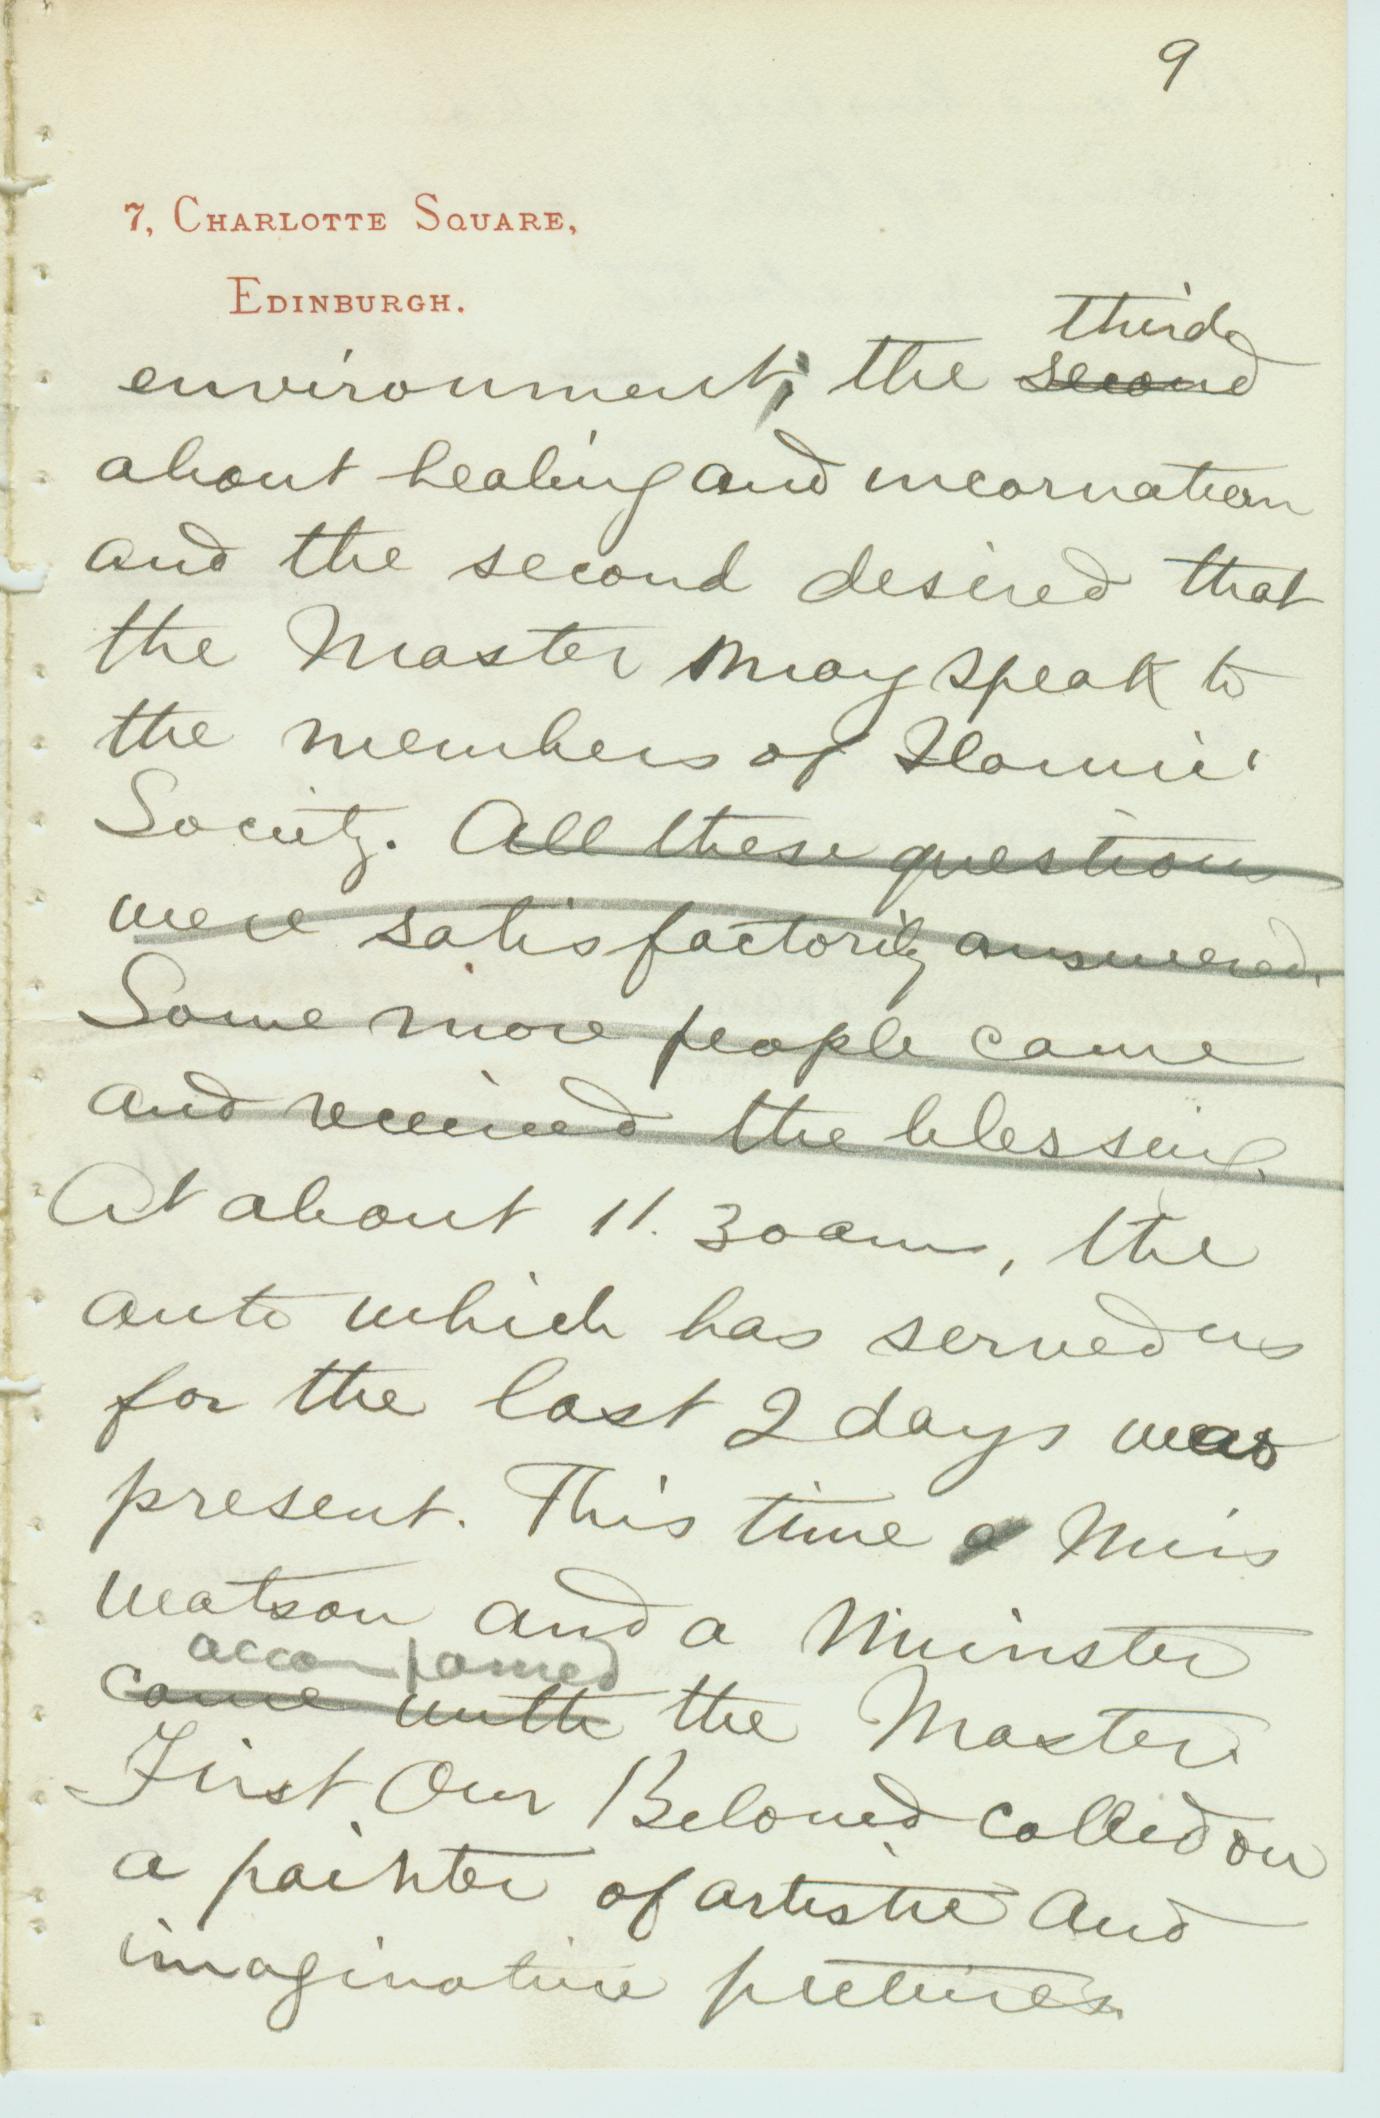 9
7, Charlotte Square,
Edinburgh.
third
environment; the second
about healing and incarnation
and the second desired that
the Master may speak to
the members of
Society. All these questions
were satisfactorily answered.
Some more people came
and received the blessing.
At about 11.30 am, the
auto which has served us
for the last 2 days was
present. This time a Miss
Watson and a Minister
accompanied
came with the Master.
First Our Beloved called on
a painter of artistic and
imaginative pictures.